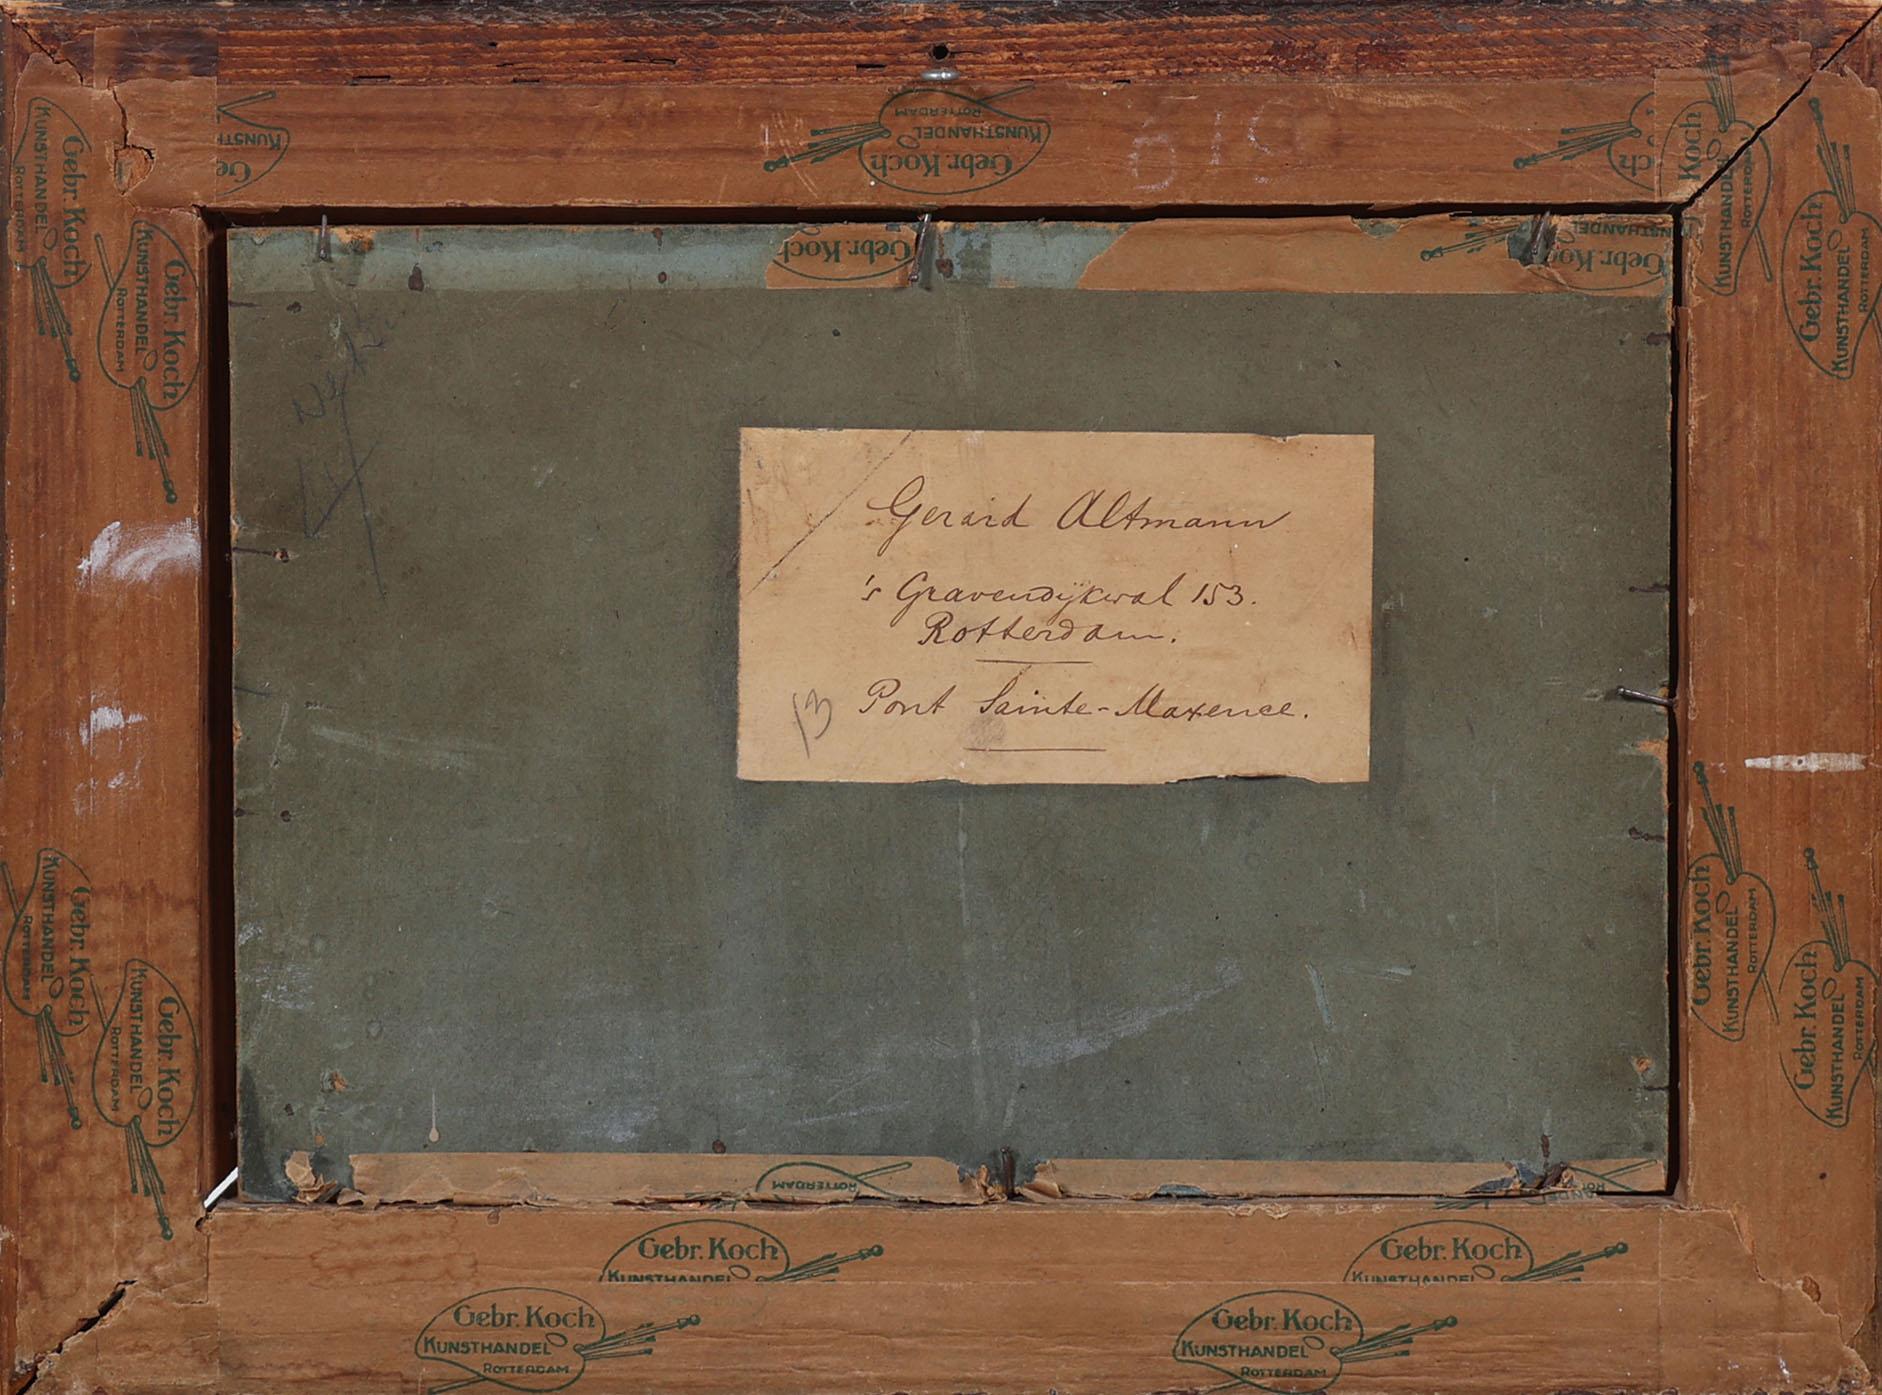 Gebr. Koch
KUNSTHANDEL
ROTTERDAM
Gebr. Koch
KUNSTHANDEL
ROTTERDAM
KUNSTHANDEL
Gebr. Koch
ROTTERDAM
KUNSTHANDEL
Gebr. Koch
Koch
KUNSTHANDEL
ROTTERDAM
Gebr. Koch
KUNSTHANDEL
ROTTERDAM
Gebr. Koch
Gebr. Koch
Gerard Altmann
's Gravendijkwal 153.
Rotterdam.
Pont Sainte-Maxence.
13
Gebr. Koch
KUNSTHANDEL
ROTTERDAM
Gebr. Koch
KUNSTHANDEL
ROTTERDAM
Gebr. Koch
KUNSTHANDEL
ROTTERDAM
Gebr. Koch
KUNSTHANDEL
ROTTERDAM
ROTTERDAM
Gebr. Koch
KUNSTHANDEL
Gebr. Koch
KUNSTHANDEL
Gebr. Koch
KUNSTHANDEL
ROTTERDAM
Gebr. Koch
KUNSTHANDEL
ROTTERDAM